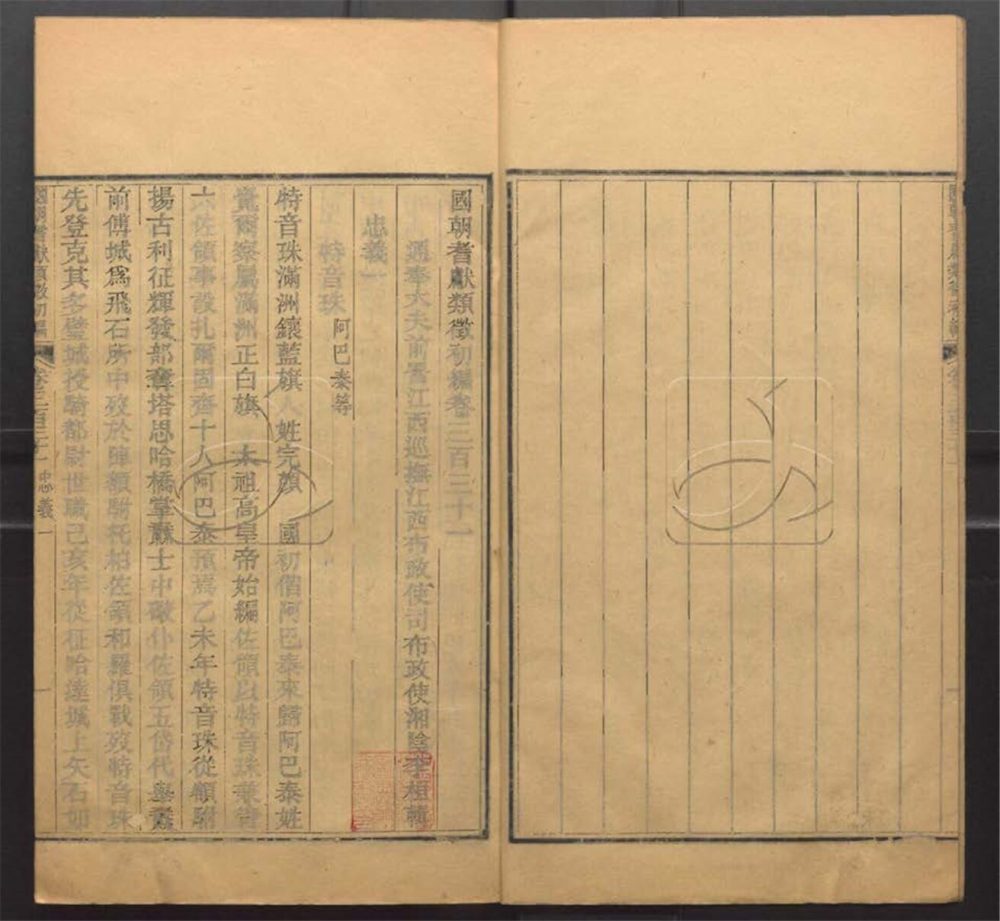 國朝耆獻類徵初編卷三百三十一
通奉大夫前署江西巡撫江西布政使司布政使湘陰李桓輯
忠義一
特音珠 阿巴泰等
特音珠滿洲鑲藍旗人姓完顏 國初偕阿巴泰來歸阿巴泰姓
覺爾察屬滿洲正白旗 太祖高皇帝始編佐領以特音珠兼管
六佐領事設扎爾固齊十人阿巴泰預焉乙未年特音珠從額駙
揚古利征輝發部奪塔思哈橋掌纛士中礮仆佐領五岱代舉纛
前傅城為飛石所中歿於陣額駙托柏佐領和羅俱戰歿特音珠
先登克其多璧城授騎都尉世職己亥年從征哈達城上矢石如
國朝耆獻類徵初編 卷三百三十一 忠義一 一